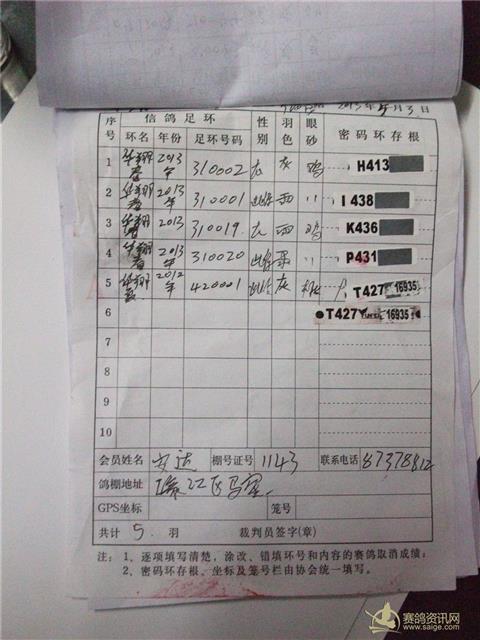 2013年5月3日
序号 信鸽足环 性别 羽色 眼砂 密码环存根
环名 年份 足环号码
1 华翔春 2013年 310002 灰 鸡 H413
2 华翔春 2013年 310001 雌 雨 〃 I 438
3 华翔春 2013 310019 雨 鸡 K436
4 华翔春 2013年 310020 雌 〃 P431
5 华翔 2012年 420001 灰 T427 16935
6 T427 16935
7
8
9
10
会员姓名 安达 棚号证号 1143 联系电话 87378812
鸽棚地址
GPS坐标 笼号
共计 5 羽 裁判员签字(章)
注：1、逐项填写清楚，涂改、错填环号和内容的赛鸽取消成绩；
2、密码环存根、坐标及笼号栏由协会统一填写。
赛鸽资讯网
www.saige.com